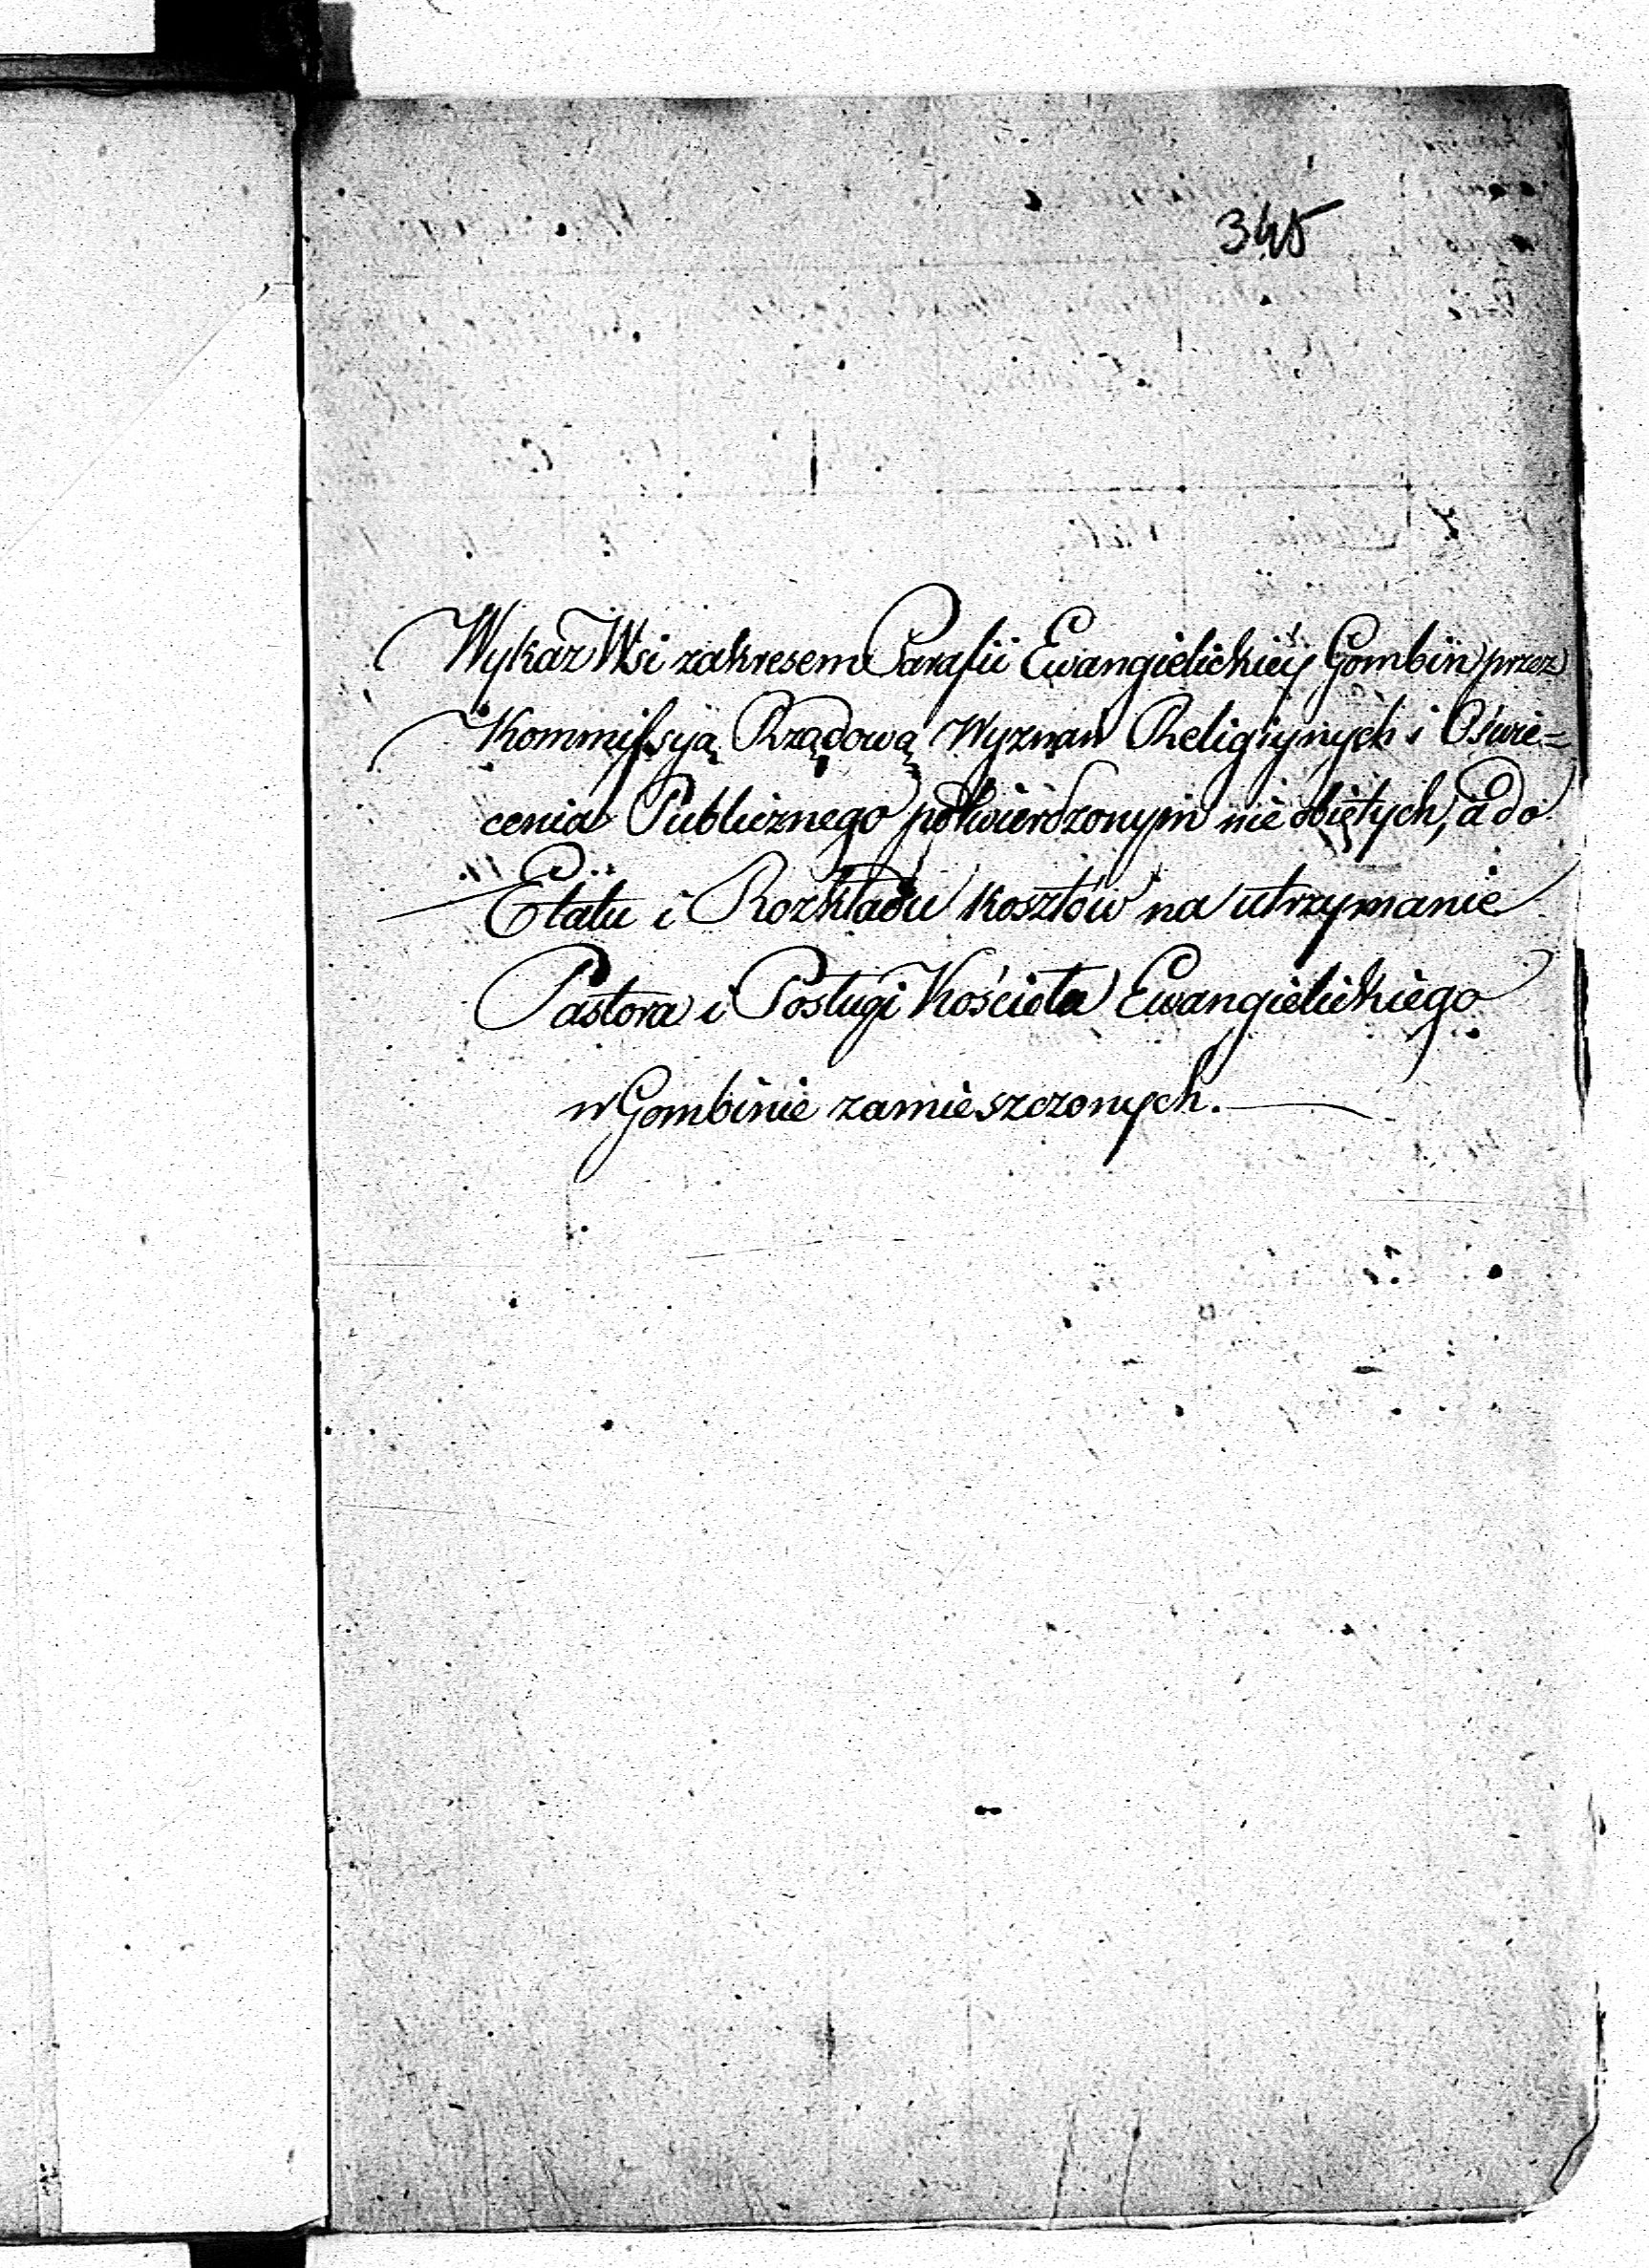 345
Wykaz Wsi zakresem Parafii Ewangielickiéy Gombin przez
Kommissyą Rządową Wyznań Religiynych i Oświe=
cenia Publicznego potwierdzonym nie obiętych, a do
Etatu i Rozkładu kosztów na utrzymanie
Pastora i Posługi Kościoła Ewangielickiego
w Gombinie zamieszczonych.